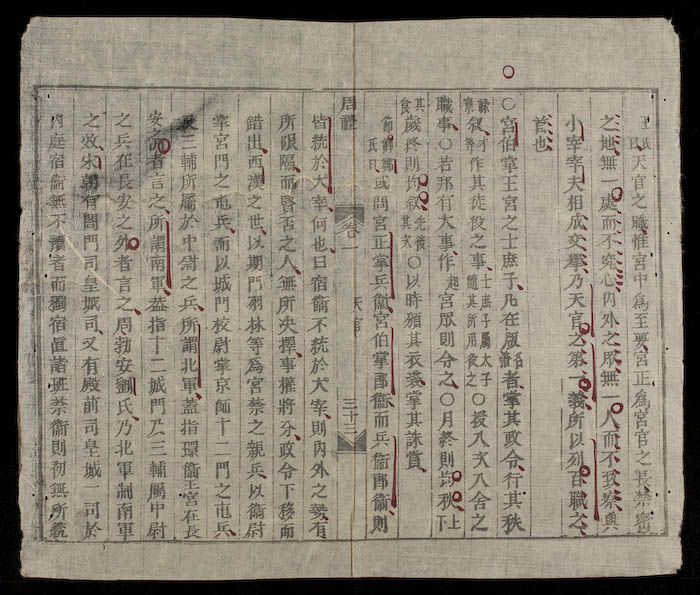 王氏曰天官之職惟宮中為至要宮正為宮官之長禁密
之地無一處而不究心內外之眾無一人而不致察與
小宰宰夫相成交舉乃天官之第一義所以列百職之
首也
○宮伯掌王宮之士庶子凡在版名籍者掌其政令行其秩
祿禀叙才等作其徒役之事士庶子屬太子隨其所用役之○授八次八舍之
職事○若邦有大事作起宮眾則令之○月終則均秩上下
其食歲終則均叙先後其次○以時頒其衣裘掌其誅賞
節卿鄭氏曰或問宮正掌兵衛宮伯掌郎衛而兵衛郎衛則
周禮 卷一 天官 三十三
皆統於大宰何也曰宿衛不統於大宰則內外之勢有
所限隔而賢否之人無所決擇事權將分政令下移而
錯出西漢之世以期門羽林等為宮禁之親兵以衞尉
掌宮門之屯兵而以城門校尉掌京師十二門之屯兵
三輔所屬於中尉之兵所謂北軍蓋指環衛王宮在長
安之者言之所謂南軍蓋指十二城門及三輔屬中尉
之兵在長安之外者言之周勃安劉氏乃北軍制南軍
之效宋朝有閤門司皇城司又有殿前司皇城 司於
內庭宿衞無不預者而獨宿直諸班禁衞則初無所統